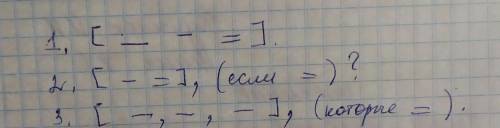 1. [ — – = ].
2. [ – = ], (если = )?
3. [ –, –, – ], (которые = ).